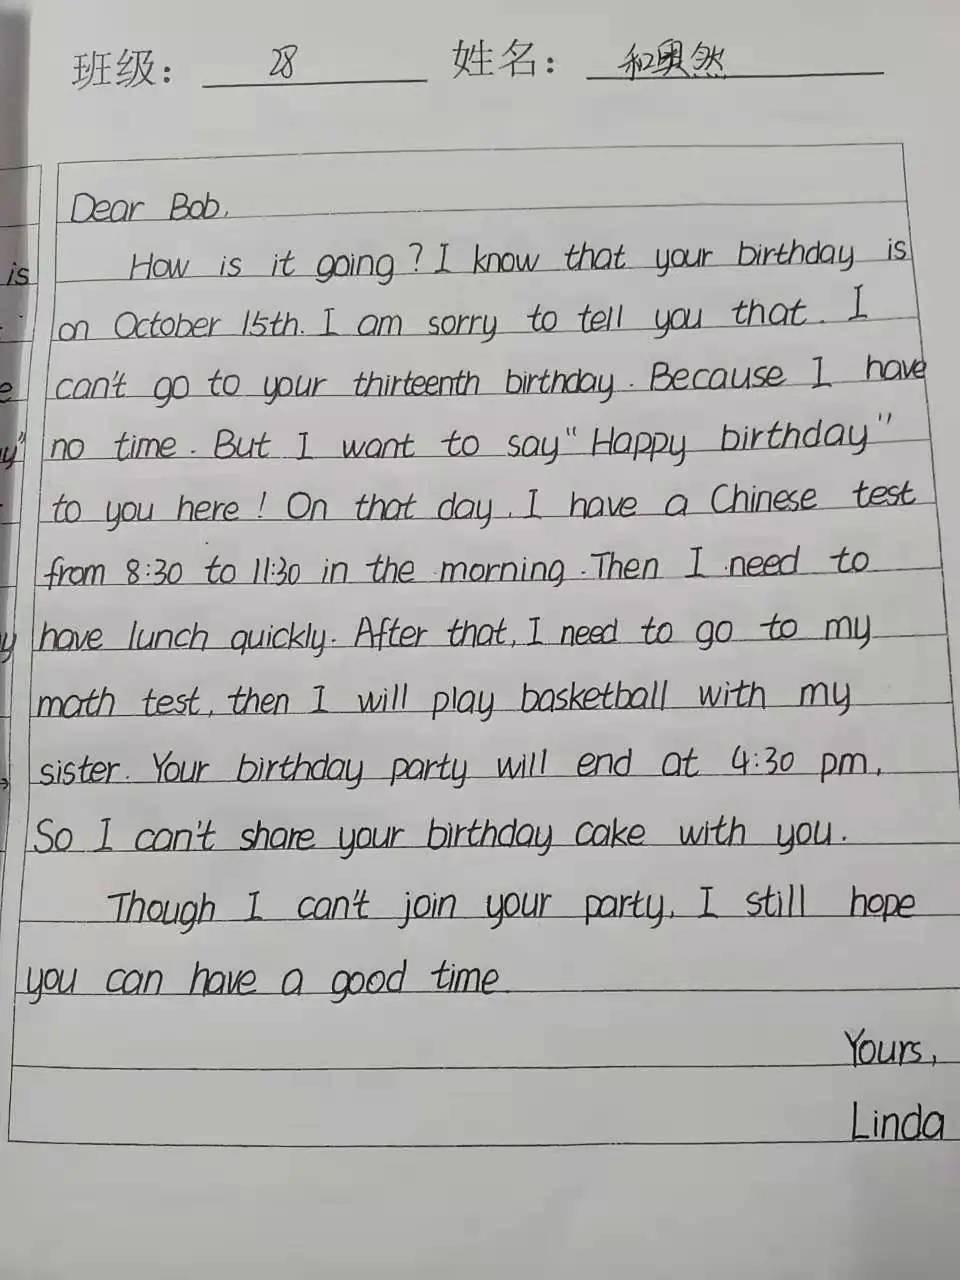 班级： 28 姓名： 和奥然
Dear Bob,
How is it going? I know that your birthday is
on October 15th. I am sorry to tell you that. I
can't go to your thirteenth birthday. Because I have
no time. But I want to say "Happy birthday"
to you here! On that day, I have a Chinese test
from 8:30 to 11:30 in the morning. Then I need to
have lunch quickly. After that, I need to go to my
math test, then I will play basketball with my
sister. Your birthday party will end at 4:30 pm,
So I can't share your birthday cake with you.
Though I can't join your party, I still hope
you can have a good time.
Yours,
Linda
is
e
y"
y